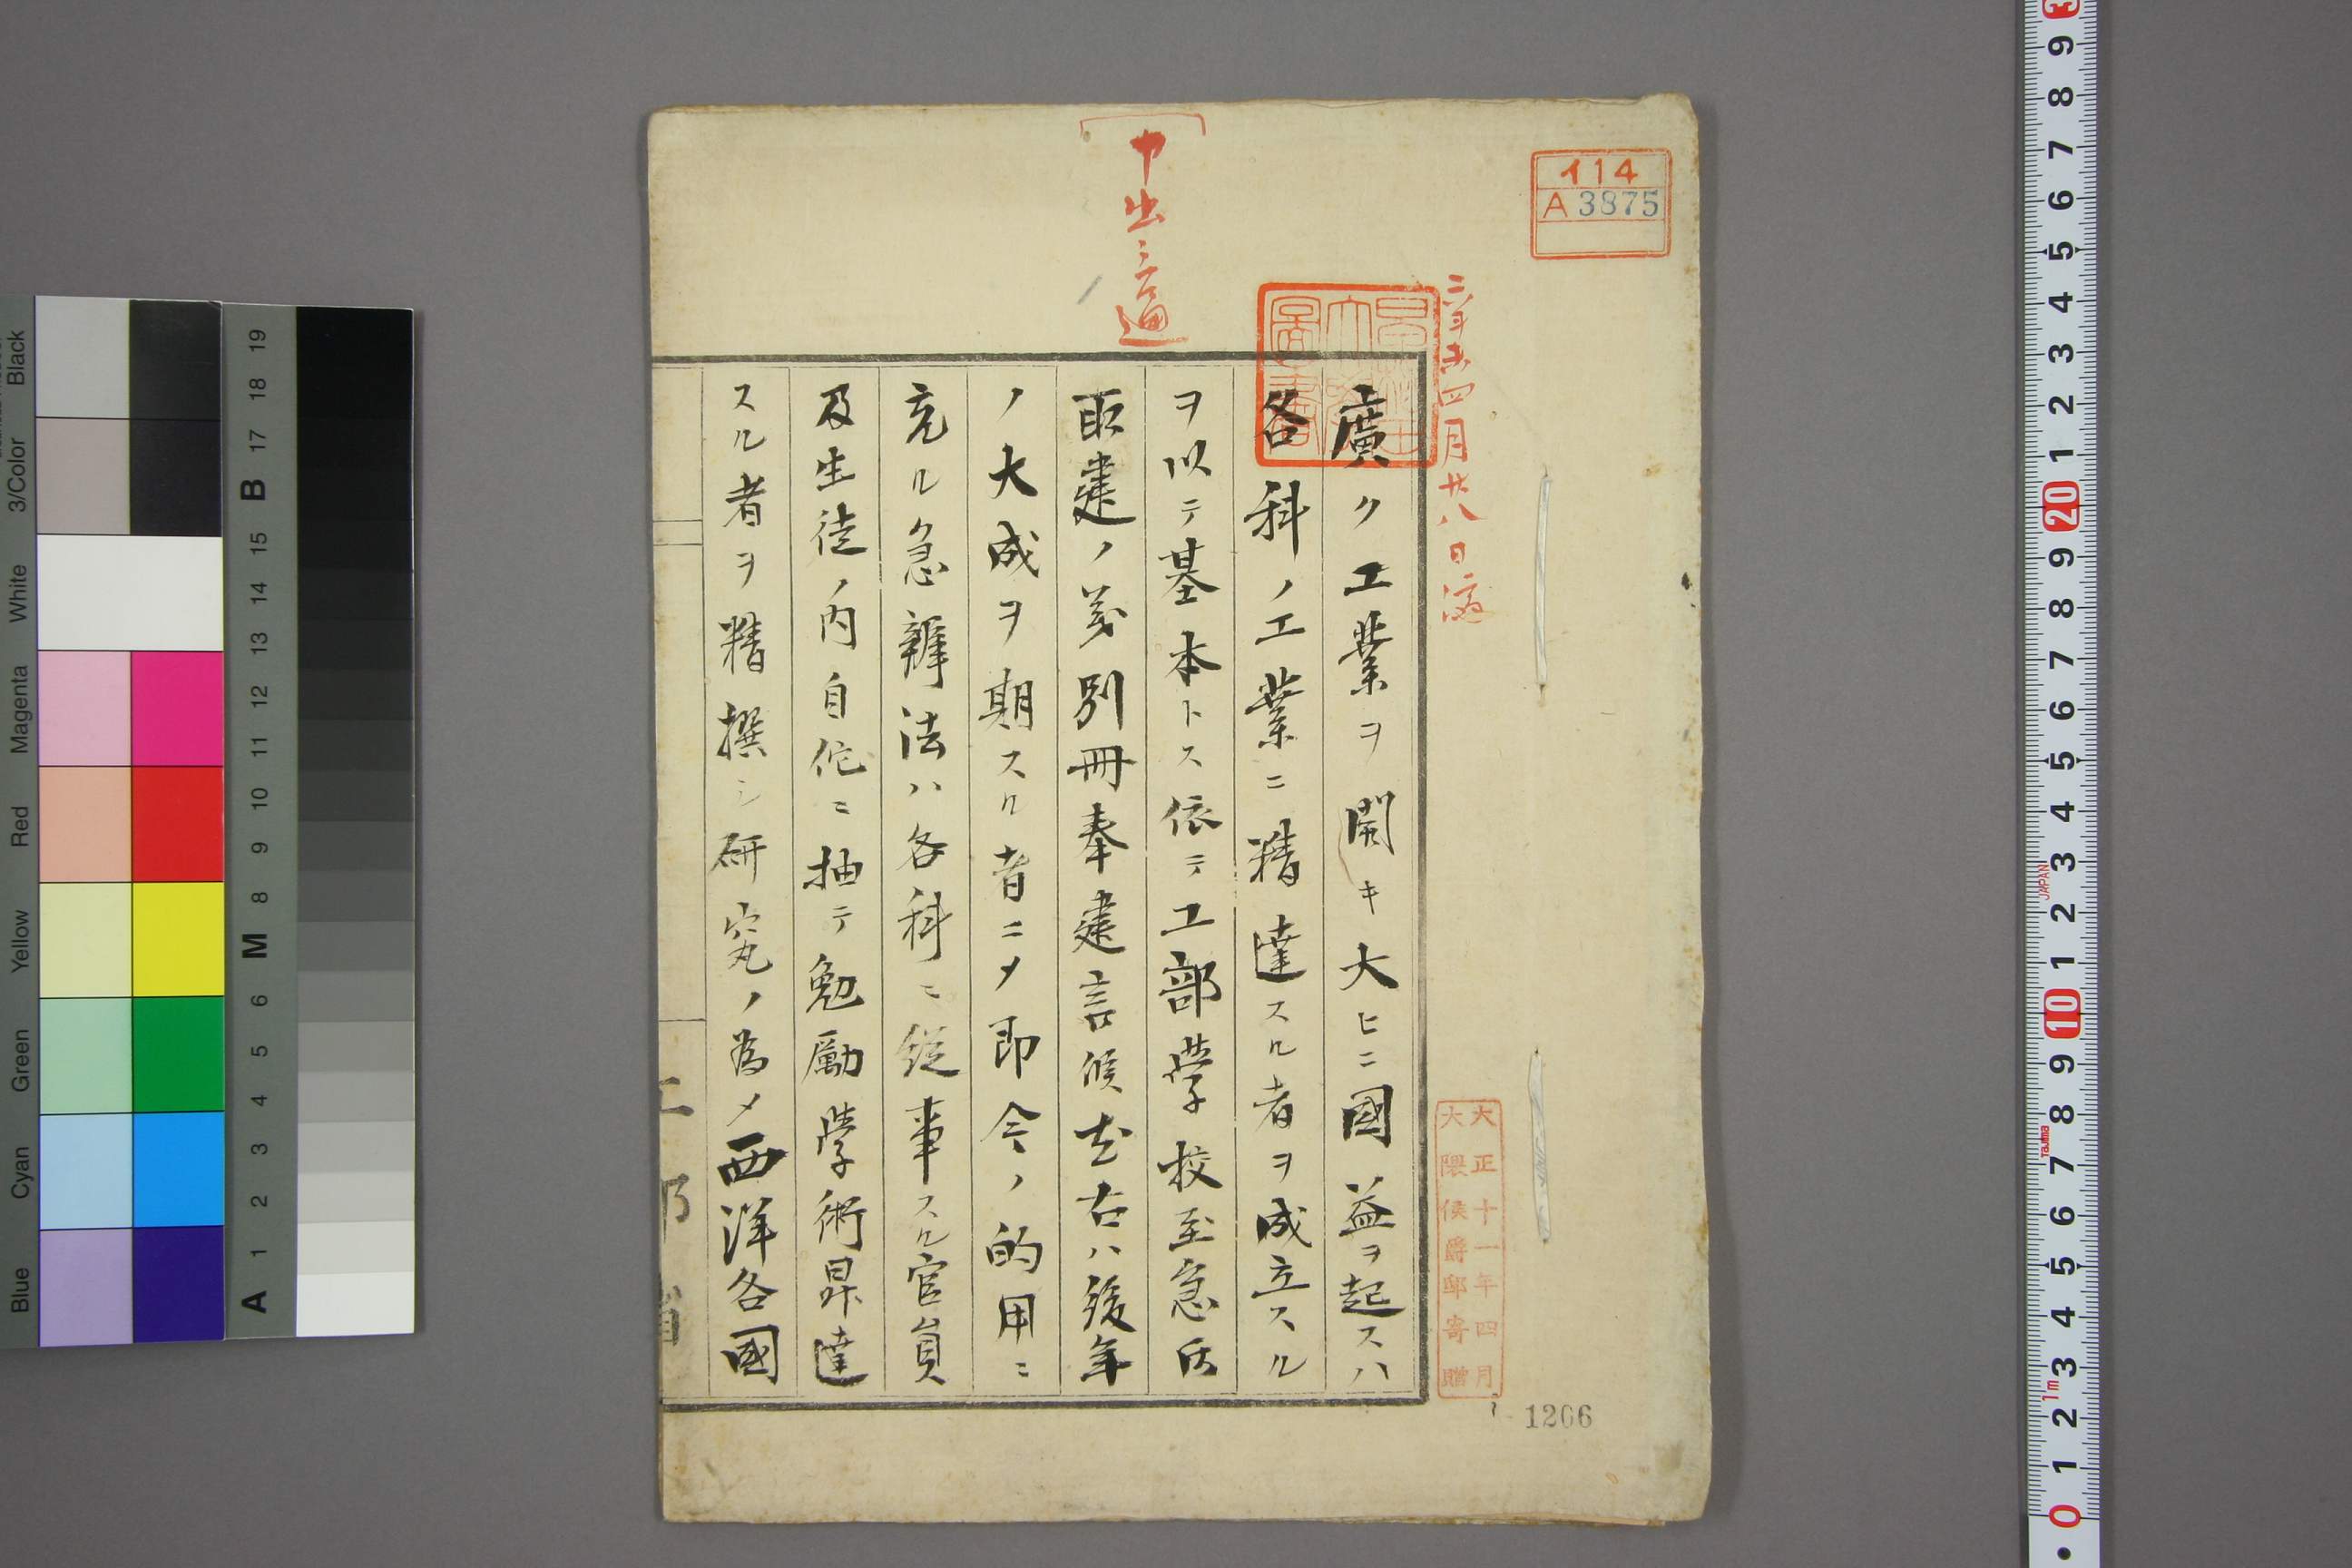 イ14
A 3875
四月廿八日済
廣ク工業ヲ開キ大ヒニ國益ヲ起スハ
各科ノ工業ニ精達スル者ヲ成立スル
ヲ以テ基本トス依テ工部學校至急御
取建ノ義別冊奉建言候尤右ハ後年
ノ大成ヲ期スル者ニメ即今ノ的用ニ
充ル急辨法ハ各科ニ従事スル官員
及生徒ノ内自佗ニ抽テ勉励學術昇達
スル者ヲ精撰シ研究ノ為メ西洋各國
大正十一年四月
大隈侯爵邸寄贈
1206
工部省
Black
3/Color
White
Magenta
Red
Yellow
Green
Cyan
Blue
19
18
17
B
16
15
14
13
12
11
10
9
8
M
6
5
4
3
2
1
A
3
9
8
7
6
5
4
3
2
1
20
9
8
7
6
5
4
3
2
1
10
9
8
7
6
5
4
3
2
1
0
JAPAN
Tajima
1m